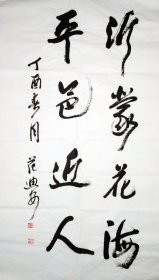 沂蒙花海
平邑近人
丁酉春月 范迪安